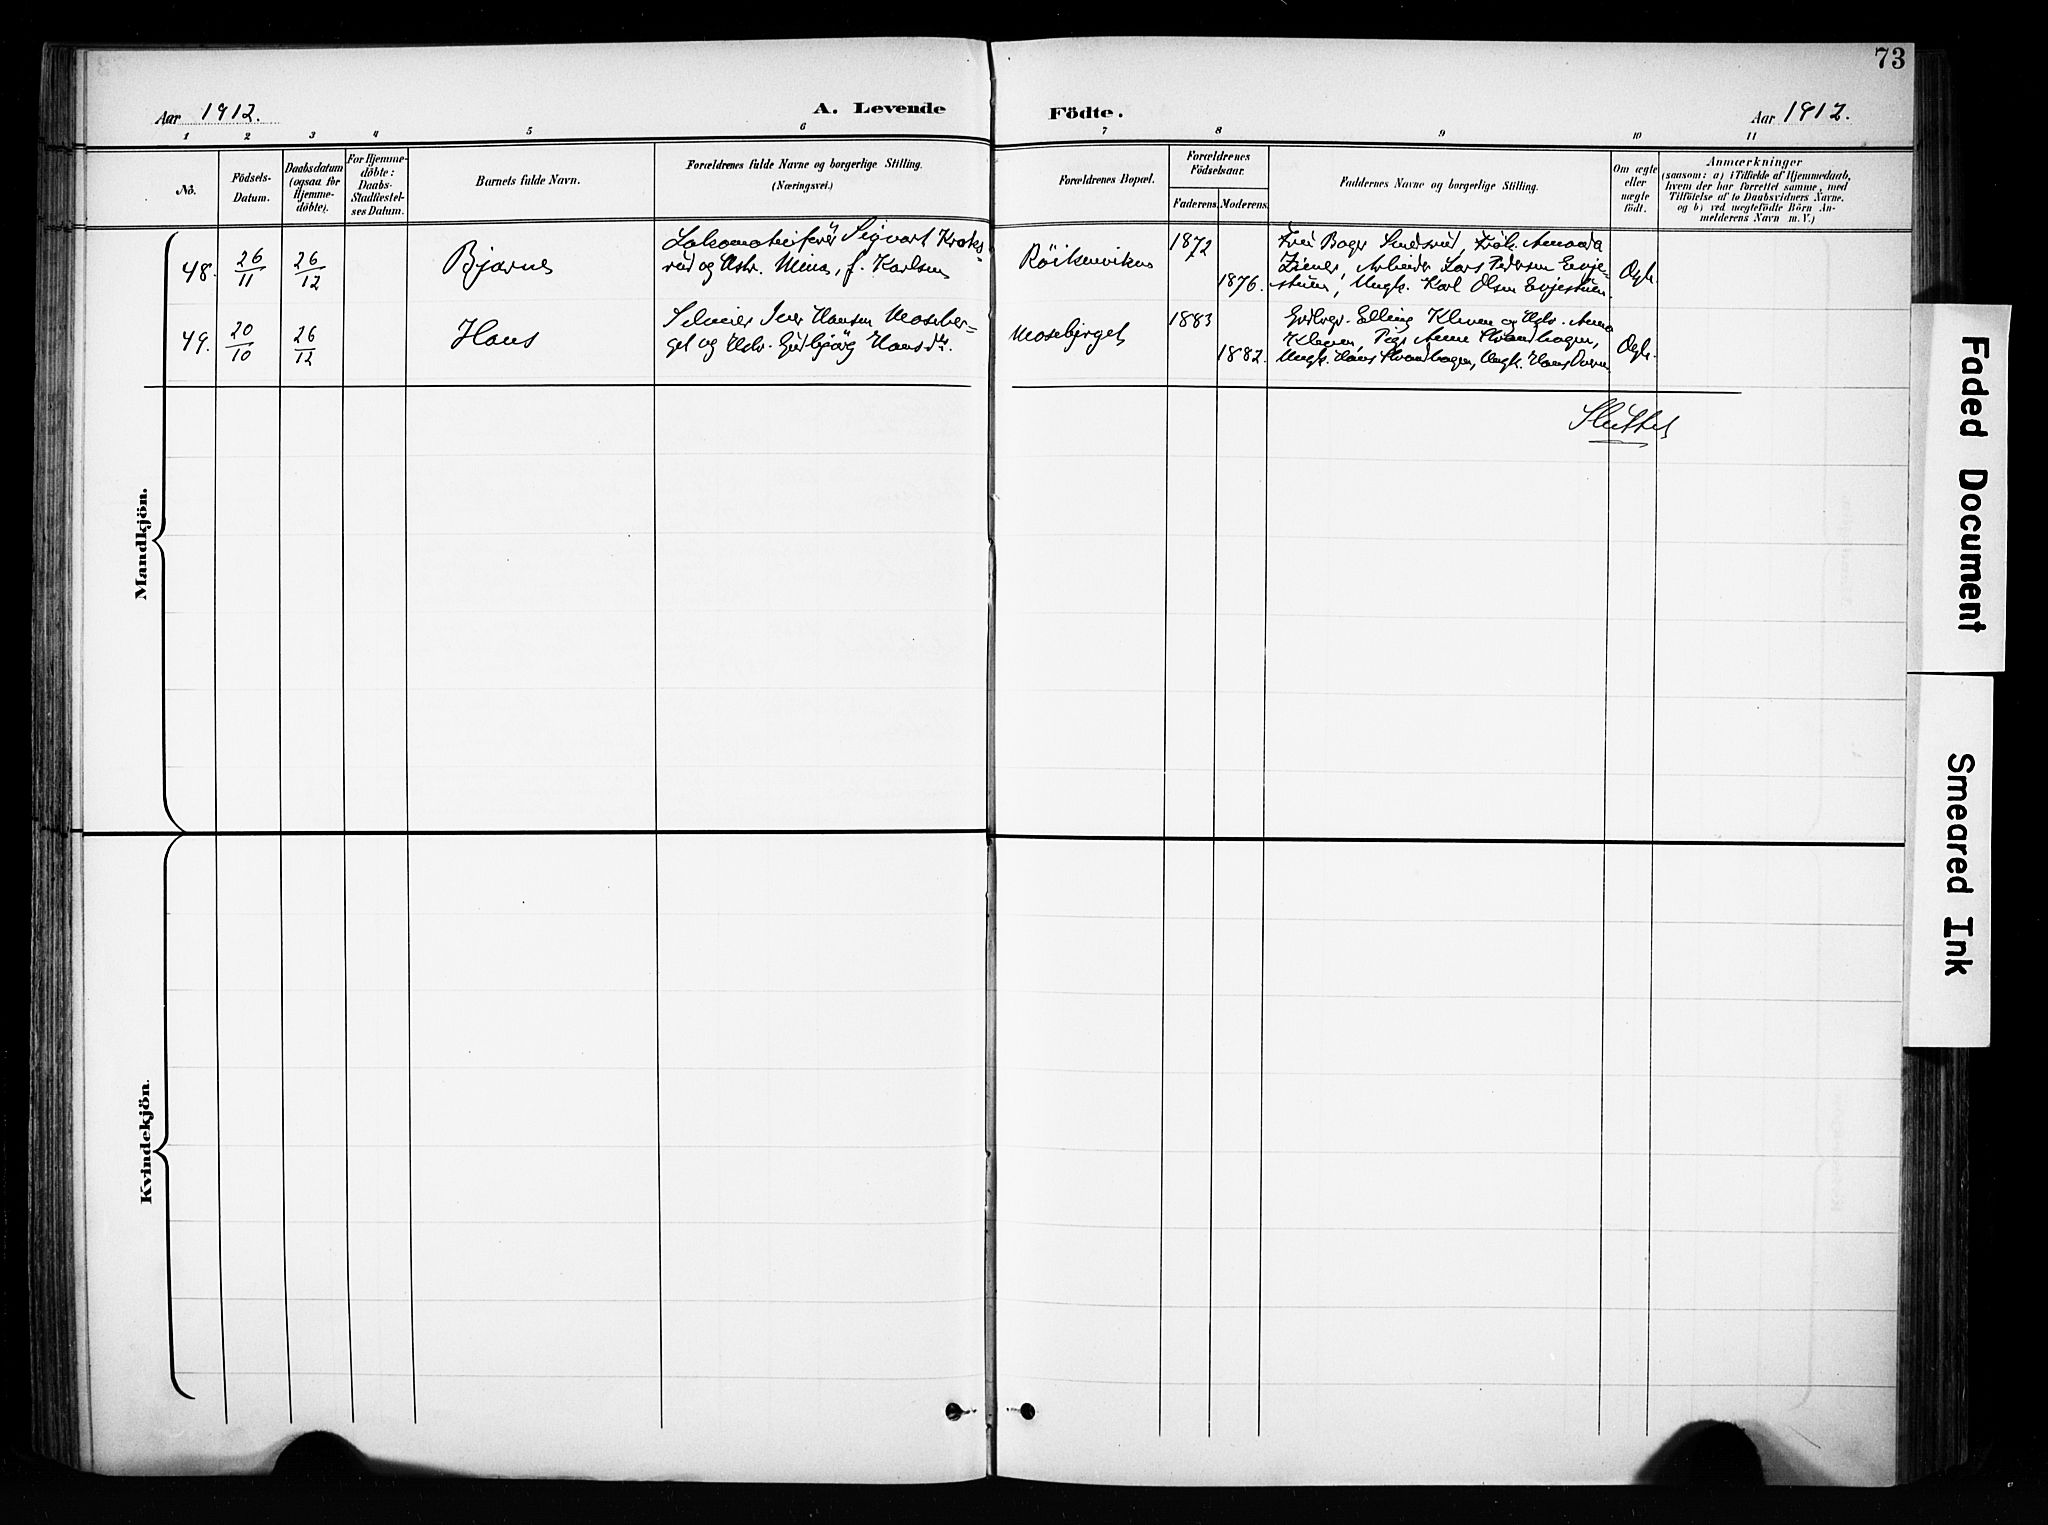 73
Aar 1912.
A. Levende
Födte.
Aar 1912.
1 2 3 4 5 6 7 8 9 10 11
No.
Födsels-
Datum.
Daabsdatum
(ogsaa for
Hjemme-
döbte).
For Hjemme-
döbte:
Daabs-
Stadfæstel-
ses Datum.
Barnets fulde Navn.
Forældrenes fulde Navne og borgerlige Stilling.
(Næringsvei.)
Forældrenes Bopæl.
Forældrenes
Födselsaar.
Faderens.
Moderens.
Faddernes Navne og borgerlige Stilling.
Om ægte
eller
uægte
födt.
Anmærkninger
(saasom: a) i Tilfælde af Hjemmedaab,
hvem der har forrettet samme, med
Tilföielse af to Daabsvidners Navne.
og b) ved uægtefödte Börn An-
melderens Navn m. V.)
Mandkjön.
48.
26/11
26/12
Bjarne
Sigvart Kroks-
rud og Hstr. Mina, f. Karlsen
Röikenviken
1872
1876.
Bager Frök. Amanda
Ziener, Arbeider Lars Pedersen Evje-
stuen, Ungk. Karl Olsen Evjestuen.
Ægte.
49.
20/10
26/12
Hans
Iver Hansen Moseber-
get og Hstr. Gudbjörg Hansdtr.
Moseberget
1883
1882.
Elling Kleven og Hstr. Anna
Kleven, Pige Anne Strandhagen,
Ungk. Hans Strandhagen, Ungk. Hans
Ægte.
Sluttet
Kvindekjön.
Faded Document
Smeared Ink